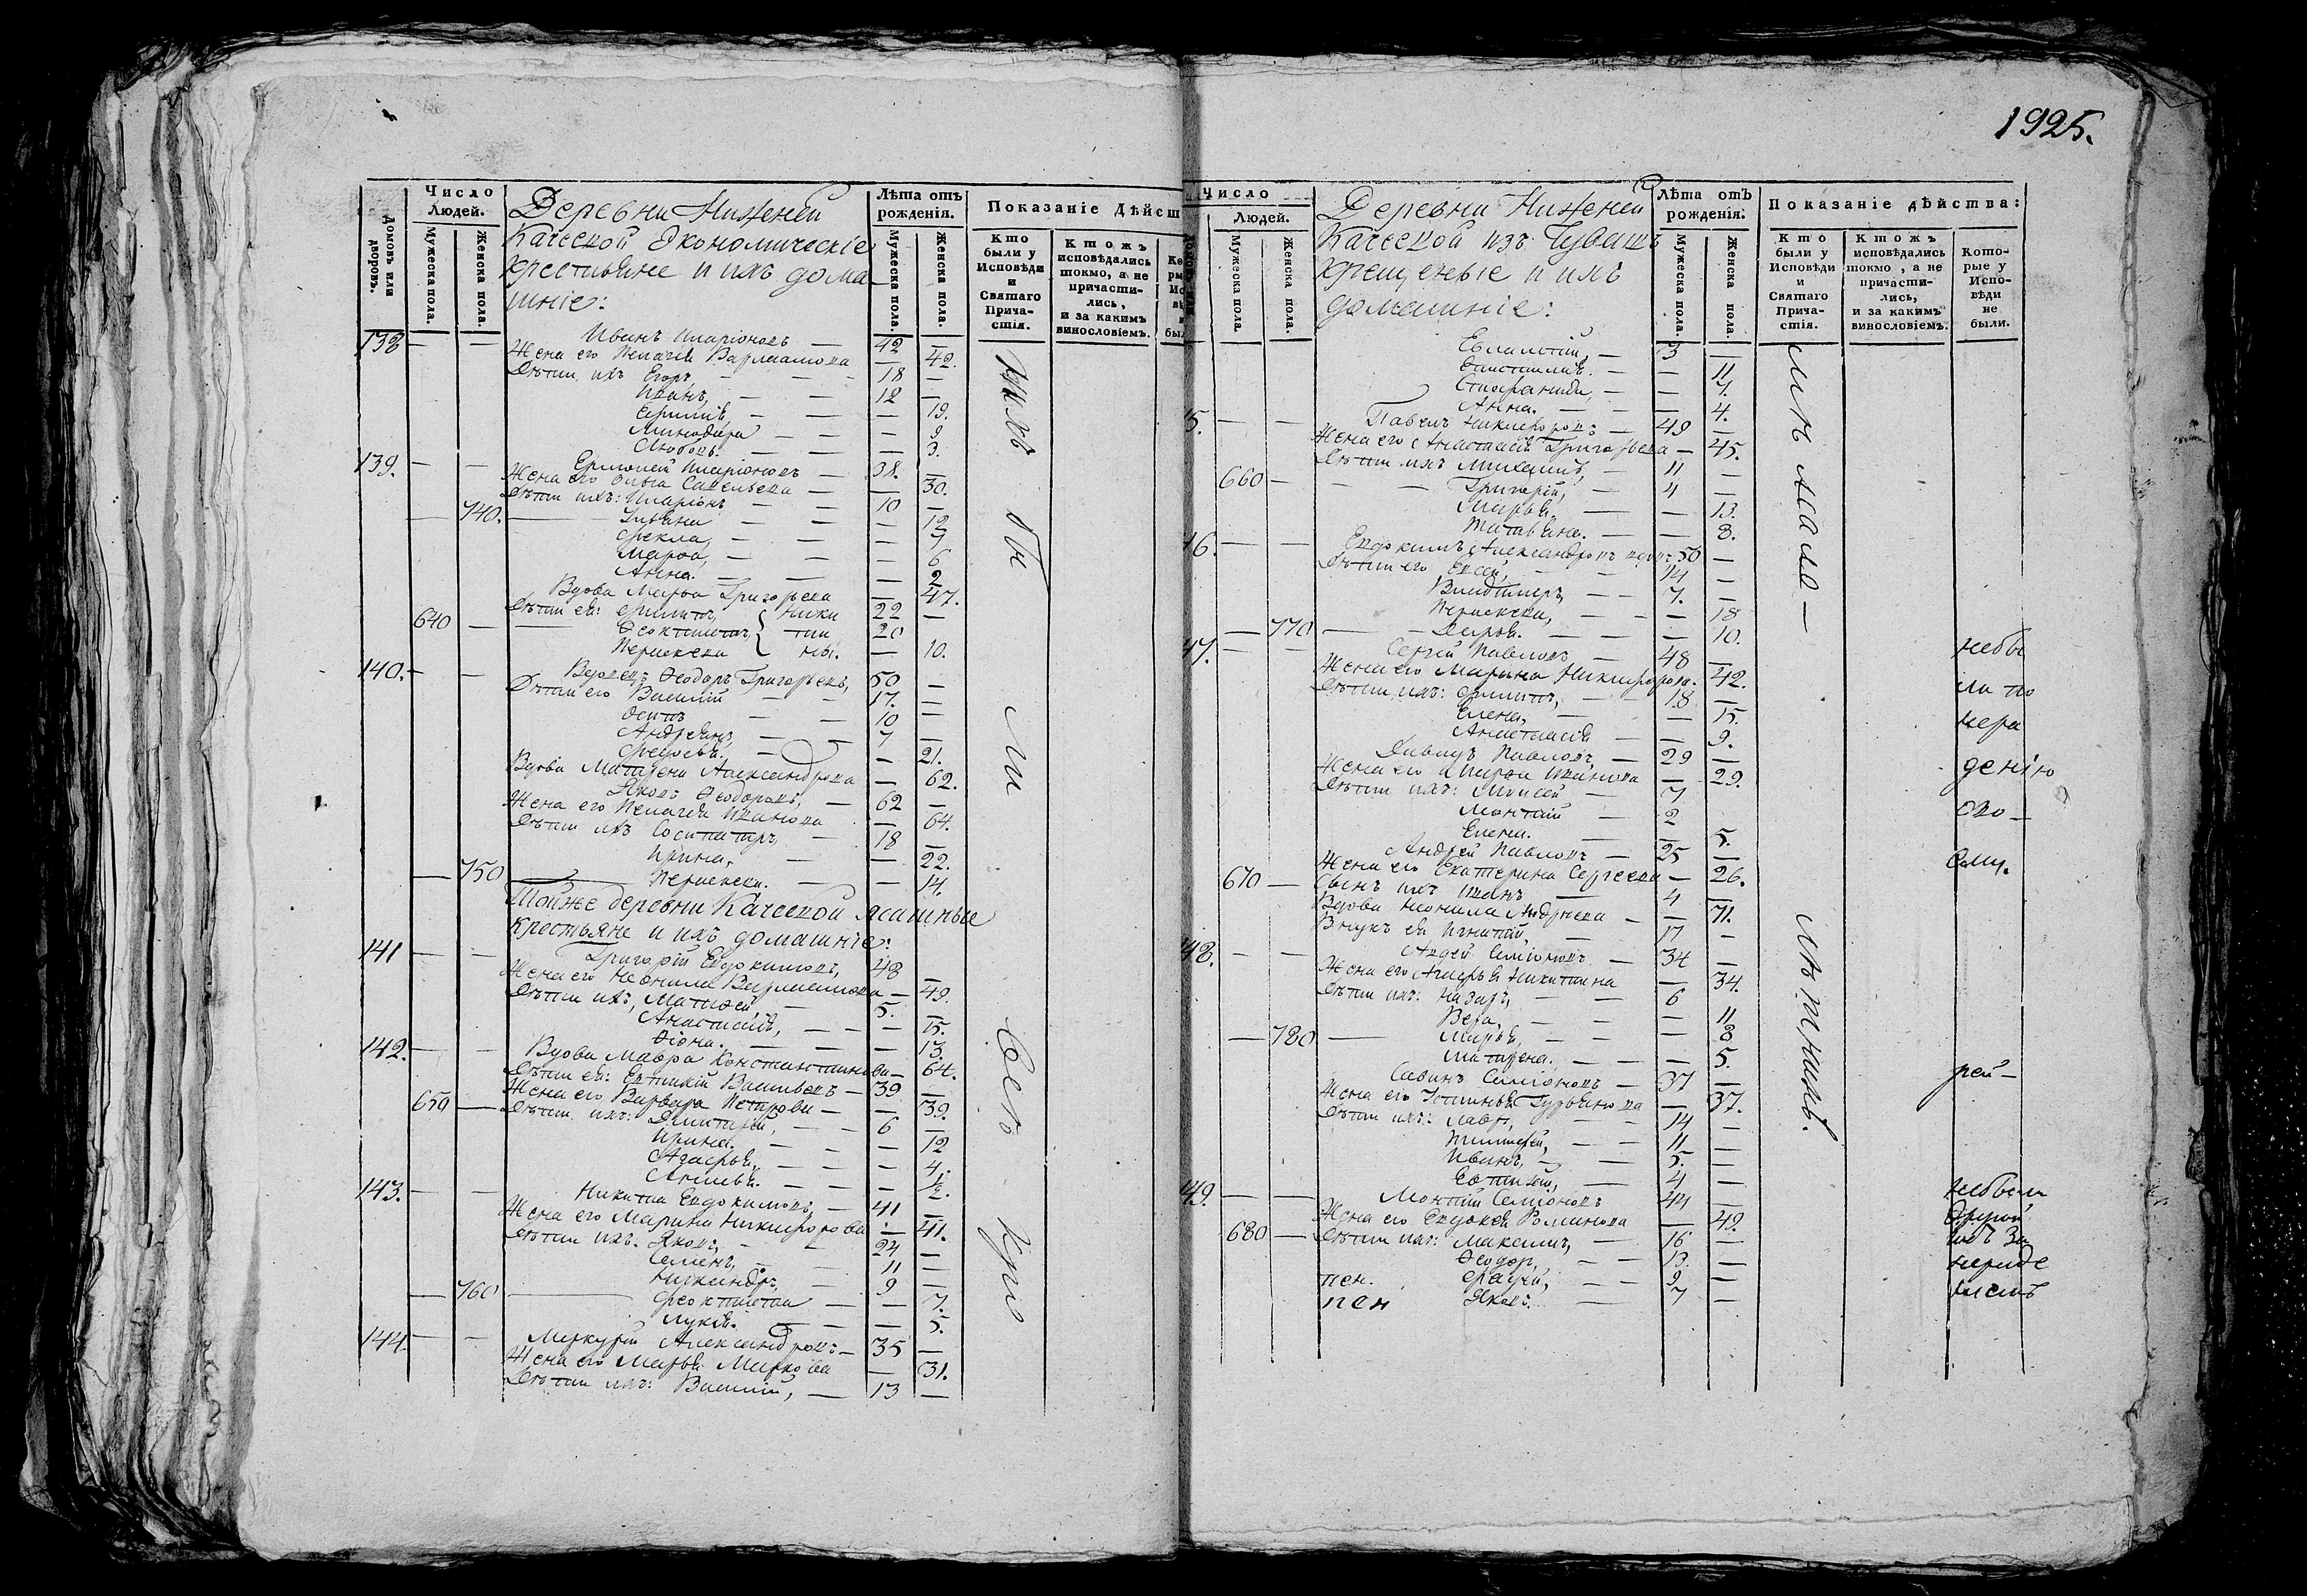 1925.
Домовъ или дворовъ.
Число Людей.
Мужеска пола.
Женска пола.
Деревни Нижней
Каческой Экономическіе
крестьяне и ихъ дома
шніе:
Лѣта отъ рожденія.
Мужеска пола.
Женска пола.
Показаніе Дѣйст
Кто были у Исповѣди и Святаго Причастія.
Ктожъ исповѣдались токмо, а не причастились, и за какимъ винословіемъ.
138 — — Иванъ Иларіоновъ — 42 —
Жена его Пелагея Варламова — 42.
Дѣти ихъ Егоръ, — 18 —
Иванъ, — — 12 —
— — 19.
Минодора — — — 9
Любовь. — — — 3.
139. — — Ермолай Иларіоновъ — 38. —
Жена его Ольга Савельева — — 30.
Дѣти ихъ: Иларіонъ — — 10 —
740. Ульяна — — — 12
Фекла, — — — 7
Марфа, — — — 6
Анна. — — — 2
Вдова Марфа Григорьева — 47.
Дѣти ея: Филипъ, Ники 22 —
640 — Феоктистъ, тин 20
Параскева ны. — 10.
140. — — Вдовецъ Ѳеодоръ Григорьевъ, 50 —
Дѣти его Василій — 17. —
Осипъ — — 10 —
Андреянъ, — — 7 —
Федосья. — — 21.
Вдова Матрена Александрова — 62.
Яковъ Ѳеодоровъ, — 62 —
Жена его Пелагея Иванова — 64.
Дѣти ихъ Сосипатръ, — 18 —
Ирина, — — 22.
750 Параскева. — — 14.
Тойже деревни Каческой Ясашные
крестьяне и ихъ домашніе:
141 — — Григорій Евдокимовъ, 48
Жена его Неонила Варламова — 49.
Дѣти ихъ, Матвей, — 5. —
Анастасія, — — — 15.
Фіона. — — — 13.
142. — — Вдова Мавра Константинова — 64.
Дѣти ея: Евтихій Васильевъ — 39 —
Жена его Варвара Петрова — — 39.
650 — Дѣти ихъ: Дмитрей, — — 6 —
Ирина. — — — 12
Агафья, — — — 4.
— — — 2.
143. — — Никита Евдокимовъ, — 41 —
Жена его Марина Никифорова — 41.
Дѣти ихъ. Яковъ, — — 24 —
Семенъ, — — 11 —
Никандръ, — 9 —
760 Феоктиста — — 7.
Лукія. — — — 5.
144. — — Меркурій Александровъ — 35 —
Жена его Марья Маркова — 31.
Дѣти ихъ: Василій, — 13 —
Сіи
бы
ли
Число Людей.
Мужеска пола.
Женска пола.
Деревни Нижней
Каческой изъ Чувашъ
крещеные и ихъ
домашніе:
Лѣта отъ рожденія.
Мужеска пола.
Женска пола.
Показаніе дѣйства:
Кто были у Исповѣди и Святаго Причастія.
Ктожъ исповѣдались токмо, а не причастились, и за какимъ винословіемъ.
Которые у Исповѣди не были.
Евлампій, — 3 —
— — 11
Стефанида, — — 7.
Анна. — — — 4.
5. — — Павелъ Никифоровъ — 49 —
Жена его Анастасія Григорьева — 45.
Дѣти ихъ Михаилъ, — 11 —
660 — — — Григорій, — 4 —
Марья, — — 13.
Татьяна. — — 8.
46. — — Евдокимъ Александровъ вдов: 50 —
Дѣти его Евсей, — — 14 —
Владимеръ, — — 7. —
Параскева, — — — 18
— 770 — Дарья. — — — 10.
47. — — Сергій Павловъ — 48 —
Жена его Марина Никифорова. — 42.
Дѣти ихъ: Филипъ, — — 18 —
Елена, — — 15.
Анастасія — — 9.
Давыдъ Павловъ, — 29 —
Жена его Марфа Иванова — 29.
Дѣти ихъ: Моисей — 7
Монтій — 2
Елена. — — 5.
Андрей Павловъ — 25 —
Жена его Екатерина Сергеева — 26.
670 — Сынъ ихъ Иванъ — 4 —
Вдова Неонила Андреева — — 71.
Внукъ ея Игнатій, — 17 —
48. — — Авдей Семіоновъ — 34 —
Жена его Агафья Никитина — 34.
Дѣти ихъ: Назаръ, — — 6
Вера, — — — 11
— 780 — Марья, — — — 8
Матрена. — — — 5.
Савинъ Семіоновъ — 37 —
Жена его Устинья Гурьянова — 37.
Дѣти ихъ: Лавръ, — — 14 —
Тимофей, — — 11 —
Иванъ, — — 5. —
Евтихей, — — 4 —
49. — — Монтій Семіоновъ 44 —
Жена его Евдокея Романова — 49.
680 — Дѣти ихъ: Максимъ, — 16 —
Ѳеодоръ, — — 13. —
пен. Фадей, — — 9. —
пен Яковъ. — 7 —
мн мало —
лѣтныхъ.
небы
ли по
нера
денію
сво —
ему.